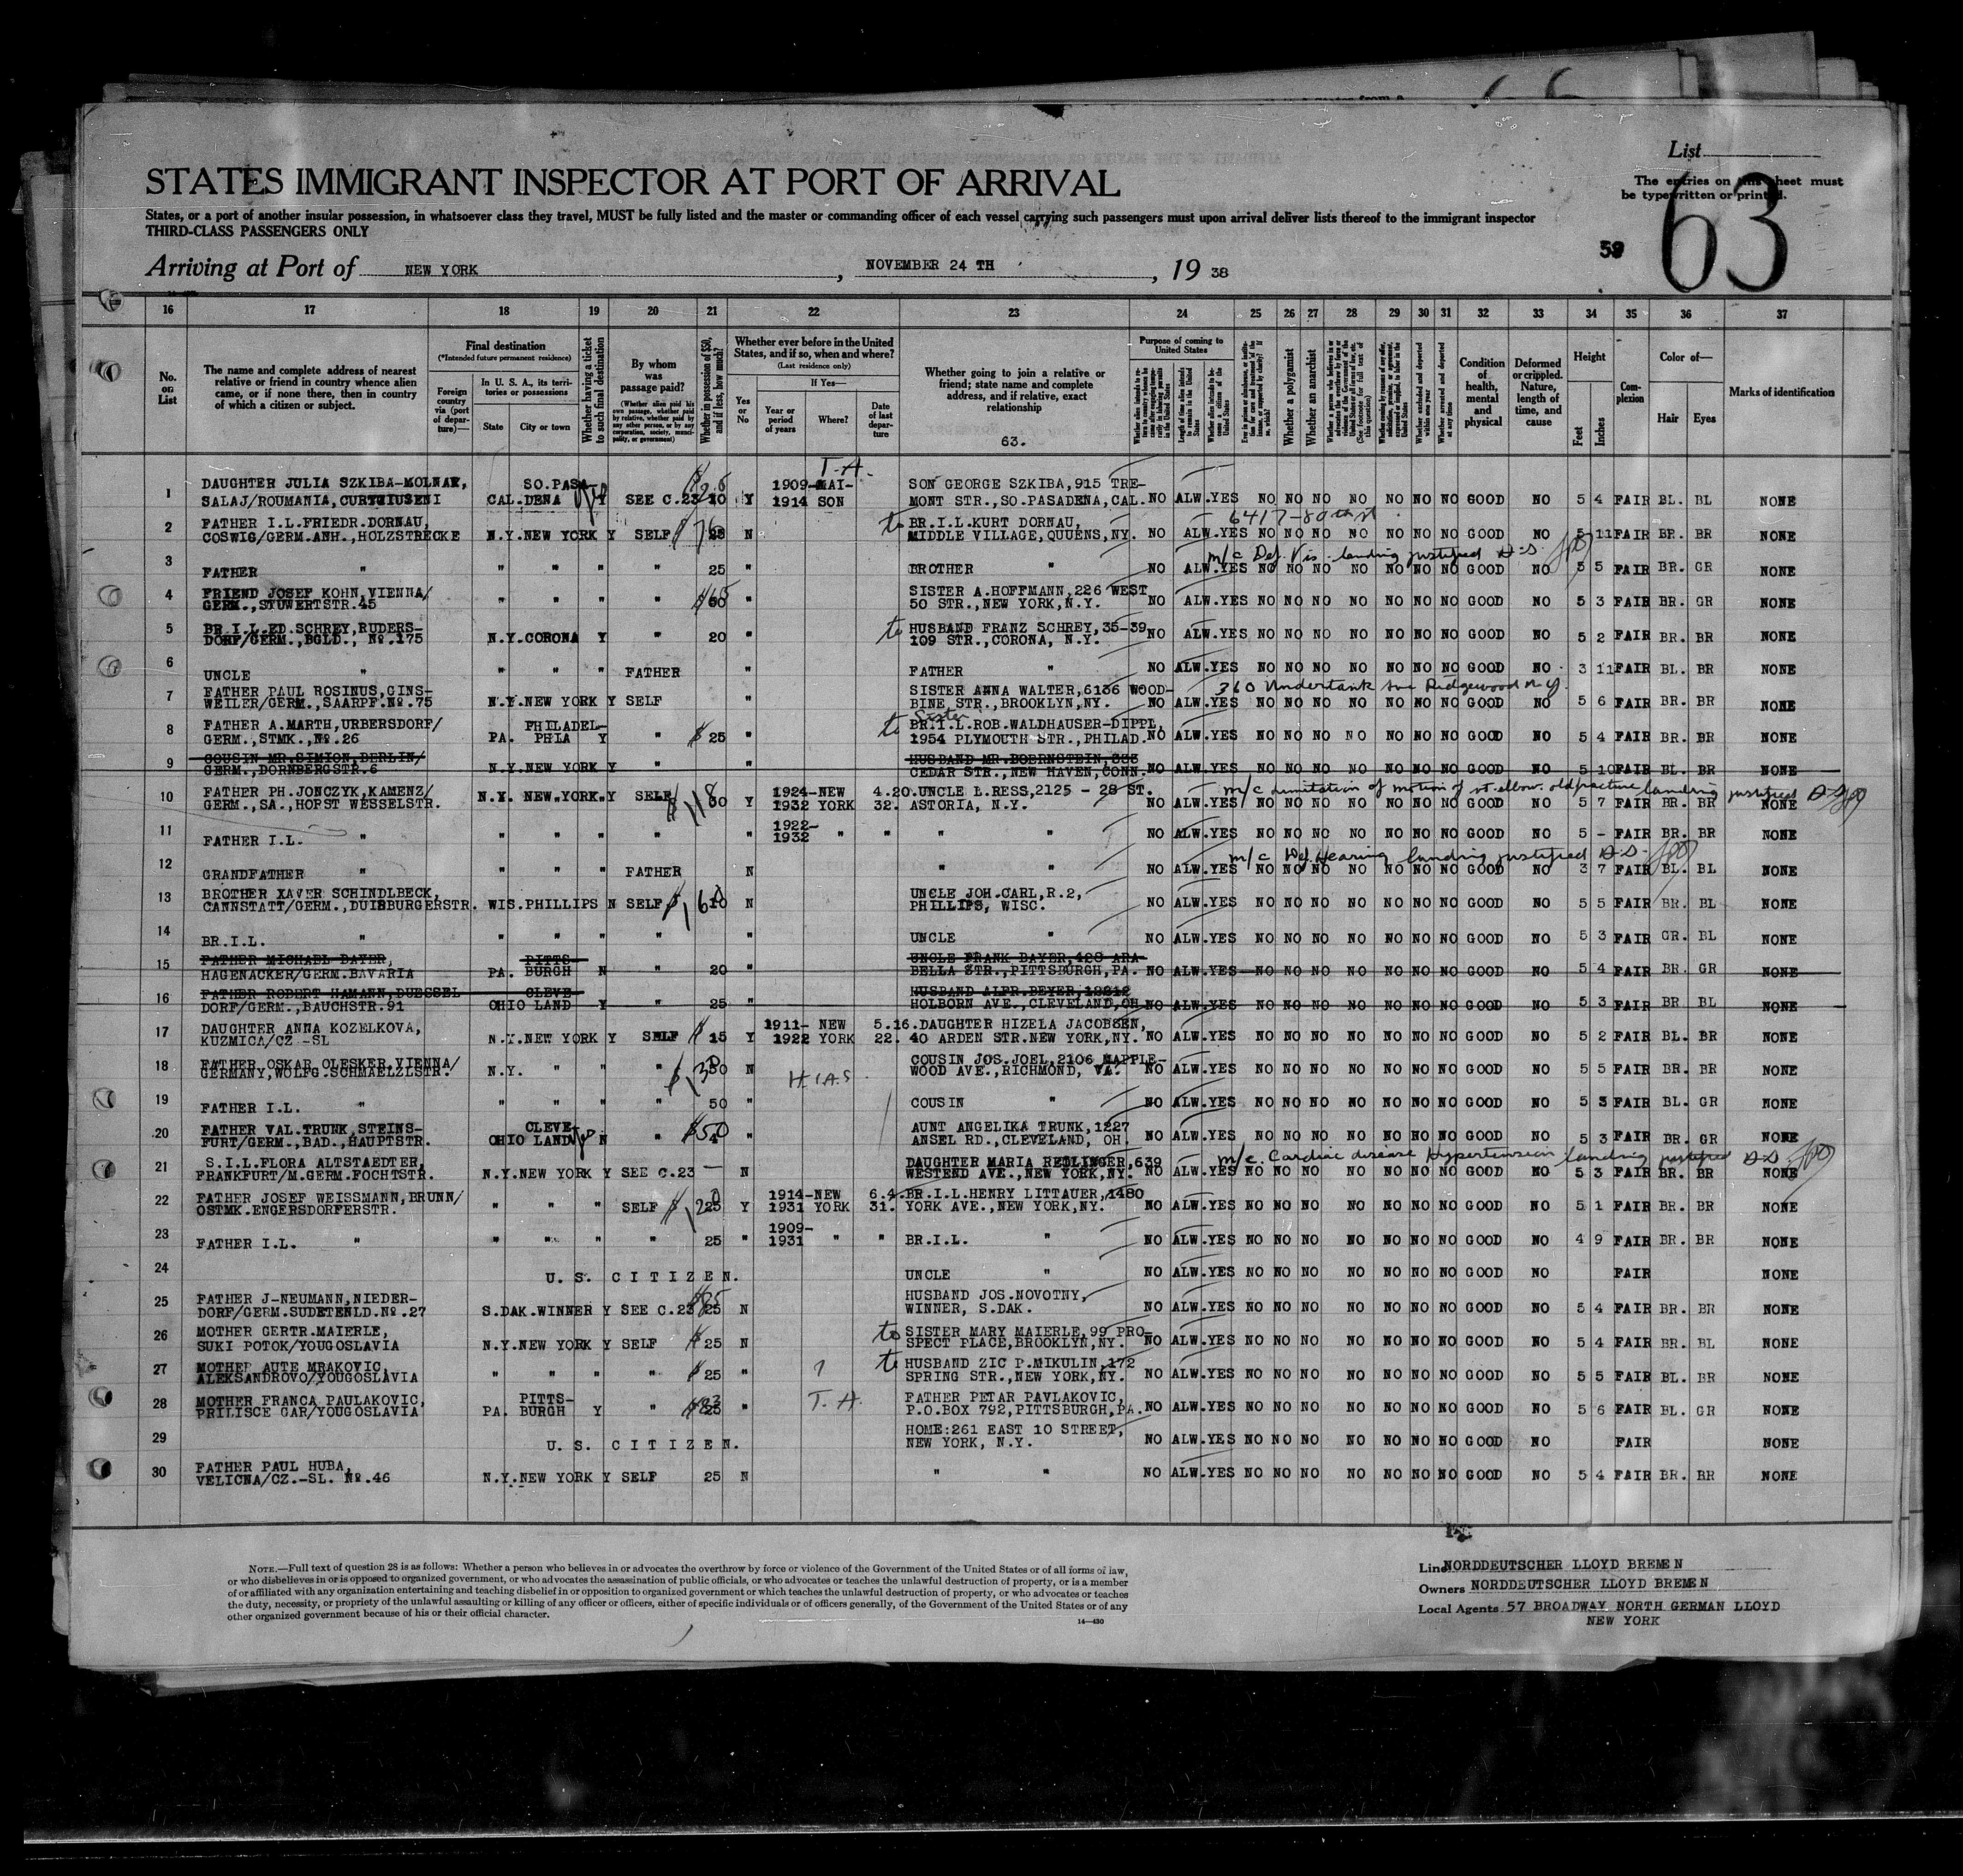 List
STATES IMMIGRANT INSPECTOR AT PORT OF ARRIVAL
The entries on this sheet must
be typewritten or printed.
63
States, or a port of another insular possession, in whatsoever class they travel, MUST be fully listed and the master or commanding officer of each vessel carrying such passengers must upon arrival deliver lists thereof to the immigrant inspector
THIRD-CLASS PASSENGERS ONLY
59
Arriving at Port of NEW YORK, NOVEMBER 24 TH, 19 38
16 17 18 19 20 21 22 23 24 25 26 27 28 29 30 31 32 33 34 35 36 37
No. on List
The name and complete address of nearest relative or friend in country whence alien came, or if none there, then in country of which a citizen or subject.
Final destination
(*Intended future permanent residence)
Foreign country via (port of departure)—
In U. S. A., its territories or possessions
State City or town
Whether having a ticket to such final destination
By whom was passage paid?
(Whether alien paid his own passage, whether paid by relative, whether paid by any other person, or by any corporation, society, municipality, or government)
Whether in possession of $50, and if less, how much?
Whether ever before in the United States, and if so, when and where?
(Last residence only)
Yes or No
If Yes—
Year or period of years Where? Date of last departure
Whether going to join a relative or friend; state name and complete address, and if relative, exact relationship
63.
Purpose of coming to United States
Length of time alien intends to remain in the United States
Whether a polygamist
Whether an anarchist
Condition of health, mental and physical
Deformed or crippled. Nature, length of time, and cause
Height
Feet Inches
Complexion
Color of—
Hair Eyes
Marks of identification
T.A.
1 DAUGHTER JULIA SZKIBA-MOLNAR, SO.PASA 1909-MAI- SON GEORGE SZKIBA,915 TRE-
SALAJ/ROUMANIA, CAL.DENA SEE C.23 Y 1914 SON MONT STR.,SO.PASADENA,CAL. NO ALW.YES NO NO NO NO NO NO NO GOOD NO 5 4 FAIR BL. BL NONE
6417-80th st
2 FATHER I.L.FRIEDR.DORNAU, to BR.I.L.KURT DORNAU,
COSWIG/GERM.ANH.,HOLZSTRECKE N.Y.NEW YORK Y SELF N MIDDLE VILLAGE,QUUENS,NY. NO ALW.YES NO NO NO NO NO NO NO GOOD NO 5 11 FAIR BR. BR NONE
m/c Def. Vis. landing justified
3 FATHER " " " " " 25 " BROTHER " NO ALW.YES NO NO NO NO NO NO NO GOOD NO 5 5 FAIR BR. GR NONE
4 FRIEND JOSEF KOHN,VIENNA/ SISTER A.HOFFMANN,226 WEST
GERM.,STUWERTSTR.45 " " " " " 50 STR.,NEW YORK,N.Y. NO ALW.YES NO NO NO NO NO NO NO GOOD NO 5 3 FAIR BR. GR NONE
5 BR.I.L.ED.SCHREY,RUDERS- to HUSBAND FRANZ SCHREY,35-39
DORF/GERM.,BGLD., No.175 N.Y.CORONA Y " 20 " 109 STR.,CORONA, N.Y. NO ALW.YES NO NO NO NO NO NO NO GOOD NO 5 2 FAIR BR. BR NONE
6 UNCLE " " " " FATHER " FATHER " NO ALW.YES NO NO NO NO NO NO NO GOOD NO 3 11 FAIR BL. BR NONE
7 FATHER PAUL ROSINUS,GINS- SISTER ANNA WALTER,6136 WOOD- 360 Ave Ridgewood N.Y.
WEILER/GERM.,SAARPF.No.75 N.Y.NEW YORK Y SELF " BINE STR.,BROOKLYN,NY. NO ALW.YES NO NO NO NO NO NO NO GOOD NO 5 6 FAIR BR. BR NONE
Sister
8 FATHER A.MARTH,URBERSDORF/ PHILADEL- to BR.I.L.ROB.WALDHAUSER-DIPPL,
GERM.,STMK.,No.26 PA. PHIA Y " $ 25 " 1954 PLYMOUTH STR.,PHILAD. NO ALW.YES NO NO NO NO NO NO NO GOOD NO 5 4 FAIR BR. BR NONE
9 COUSIN MR.SIMION,BERLIN/ HUSBAND MR.BOERNSTEIN,
GERM.,DORNBERGSTR.6 N.Y.NEW YORK Y " " CEDAR STR.,NEW HAVEN,CONN. NO ALW.YES NO NO NO NO NO NO NO GOOD NO 5 10 FAIR BL. BR NONE
m/c Limitation of motion of rt. elbow. old fracture landing justified
10 FATHER PH.JONCZYK,KAMENZ/ 1924-NEW 4.20. UNCLE L.RESS,2125 - 28 ST.
GERM.,SA.,HORST WESSELSTR. N.Y. NEW YORK Y SELF Y 1932 YORK 32. ASTORIA, N.Y. NO ALW.YES NO NO NO NO NO NO NO GOOD NO 5 7 FAIR BR. BR NONE
11 FATHER I.L. " " " " " " 1922-1932 " " " " NO ALW.YES NO NO NO NO NO NO NO GOOD NO 5 - FAIR BR. BR NONE
m/c Def. Hearing landing justified
12 GRANDFATHER " " " " FATHER N " " NO ALW.YES NO NO NO NO NO NO NO GOOD NO 3 7 FAIR BL. BL NONE
13 BROTHER XAVER SCHINDLBECK, UNCLE JOH.CARL,R.2,
CANNSTATT/GERM.,DUISBURGERSTR. WIS.PHILLIPS N SELF N PHILLIPS, WISC. NO ALW.YES NO NO NO NO NO NO NO GOOD NO 5 5 FAIR BR. BL NONE
14 BR.I.L. " " " " " " UNCLE " NO ALW.YES NO NO NO NO NO NO NO GOOD NO 5 3 FAIR GR. BL NONE
15 FATHER MICHAEL BAYER, PITTS- UNCLE FRANK BAYER,428 ARA-
HAGENACKER/GERM.BAVARIA PA. BURGH N " 20 " BELLA STR.,PITTSBURGH,PA. NO ALW.YES NO NO NO NO NO NO NO GOOD NO 5 4 FAIR BR. GR NONE
16 FATHER ROBERT HAMANN,DUESSEL CLEVE- HUSBAND ALFR.BEYER,
DORF/GERM.,BAUCHSTR.91 OHIO LAND Y " 25 " HOLBORN AVE.,CLEVELAND,OH NO ALW.YES NO NO NO NO NO NO NO GOOD NO 5 3 FAIR BR BL NONE
17 DAUGHTER ANNA KOZELKOVA, 1911- NEW 5.16. DAUGHTER HIZELA JACOBSEN,
KUZMICA/CZ -SL N.Y.NEW YORK Y SELF $ 15 Y 1922 YORK 22. 40 ARDEN STR.NEW YORK,NY. NO ALW.YES NO NO NO NO NO NO NO GOOD NO 5 2 FAIR BL. BR NONE
18 FATHER OSKAR OLESKER,VIENNA/ COUSIN JOS.JOEL,2106 MAPPLE-
GERMANY,WOLFG.SCHMAELZLSTR. N.Y. " " " N WOOD AVE.,RICHMOND, VA. NO ALW.YES NO NO NO NO NO NO NO GOOD NO 5 5 FAIR BR. BR NONE
H.I.A.S.
19 FATHER I.L. " " " " " 50 " COUSIN " NO ALW.YES NO NO NO NO NO NO NO GOOD NO 5 3 FAIR BL. GR NONE
20 FATHER VAL.TRUNK,STEINS- CLEVE- AUNT ANGELIKA TRUNK,1227
FURT/GERM.,BAD.,HAUPTSTR. OHIO LAND N " $50 " ANSEL RD.,CLEVELAND, OH. NO ALW.YES NO NO NO NO NO NO NO GOOD NO 5 3 FAIR BR. GR NONE
m/c. Cardiac disease Hypertension landing justified
21 S.I.L.FLORA ALTSTAEDTER, DAUGHTER MARIA REDLINGER,639
FRANKFURT/M.GERM.FOCHTSTR. N.Y.NEW YORK Y SEE C.23 — N WESTEND AVE.,NEW YORK,NY. NO ALW.YES NO NO NO NO NO NO NO GOOD NO 5 3 FAIR BR. BR NONE
22 FATHER JOSEF WEISSMANN,BRUNN/ 1914-NEW 6.4. BR.I.L.HENRY LITTAUER,1480
OSTMK.ENGERSDORFERSTR. " " " SELF Y 1931 YORK 31. YORK AVE.,NEW YORK,NY. NO ALW.YES NO NO NO NO NO NO NO GOOD NO 5 1 FAIR BR. BR NONE
23 FATHER I.L. " " " " " 25 " 1909-1931 " " BR.I.L. " NO ALW.YES NO NO NO NO NO NO NO GOOD NO 4 9 FAIR BR. BR NONE
24 U. S. CITIZEN. UNCLE " NO ALW.YES NO NO NO NO NO NO NO GOOD NO FAIR NONE
25 FATHER J-NEUMANN,NIEDER- HUSBAND JOS.NOVOTNY,
DORF/GERM.SUDETENLD.No.27 S.DAK.WINNER Y SEE C.23 25 N WINNER, S.DAK. NO ALW.YES NO NO NO NO NO NO NO GOOD NO 5 4 FAIR BR. BR NONE
26 MOTHER GERTR.MAIERLE, to SISTER MARY MAIERLE,99 PRO-
SUKI POTOK/YOUGOSLAVIA N.Y.NEW YORK Y SELF $ 25 N SPECT PLACE,BROOKLYN,NY. NO ALW.YES NO NO NO NO NO NO NO GOOD NO 5 4 FAIR BR. BL NONE
27 MOTHER AUTE MRAKOVIC, ? to HUSBAND ZIC P.MIKULIN,172
ALEKSANDROVO/YOUGOSLAVIA " " " " $ 25 " SPRING STR.,NEW YORK,NY. NO ALW.YES NO NO NO NO NO NO NO GOOD NO 5 5 FAIR BL. BR NONE
28 MOTHER FRANCA PAULAKOVIC, PITTS- T.A. FATHER PETAR PAVLAKOVIC,
PRILISCE GAR/YOUGOSLAVIA PA. BURGH Y " " P.O.BOX 792,PITTSBURGH,PA. NO ALW.YES NO NO NO NO NO NO NO GOOD NO 5 6 FAIR BL. GR NONE
29 HOME:261 EAST 10 STREET,
U. S. CITIZEN. NEW YORK, N.Y. NO ALW.YES NO NO NO NO NO NO NO GOOD NO FAIR NONE
30 FATHER PAUL HUBA,
VELICNA/CZ.-SL. No.46 N.Y.NEW YORK Y SELF 25 N " " NO ALW.YES NO NO NO NO NO NO NO GOOD NO 5 4 FAIR BR. BR NONE
NOTE.—Full text of question 28 is as follows: Whether a person who believes in or advocates the overthrow by force or violence of the Government of the United States or of all forms of law,
or who disbelieves in or is opposed to organized government, or who advocates the assassination of public officials, or who advocates or teaches the unlawful destruction of property, or is a member
of or affiliated with any organization entertaining and teaching disbelief in or opposition to organized government or which teaches the unlawful destruction of property, or who advocates or teaches
the duty, necessity, or propriety of the unlawful assaulting or killing of any officer or officers, either of specific individuals or of officers generally, of the Government of the United States or of any
other organized government because of his or their official character.
14—430
Line NORDDEUTSCHER LLOYD BREMEN
Owners NORDDEUTSCHER LLOYD BREMEN
Local Agents 57 BROADWAY NORTH GERMAN LLOYD
NEW YORK